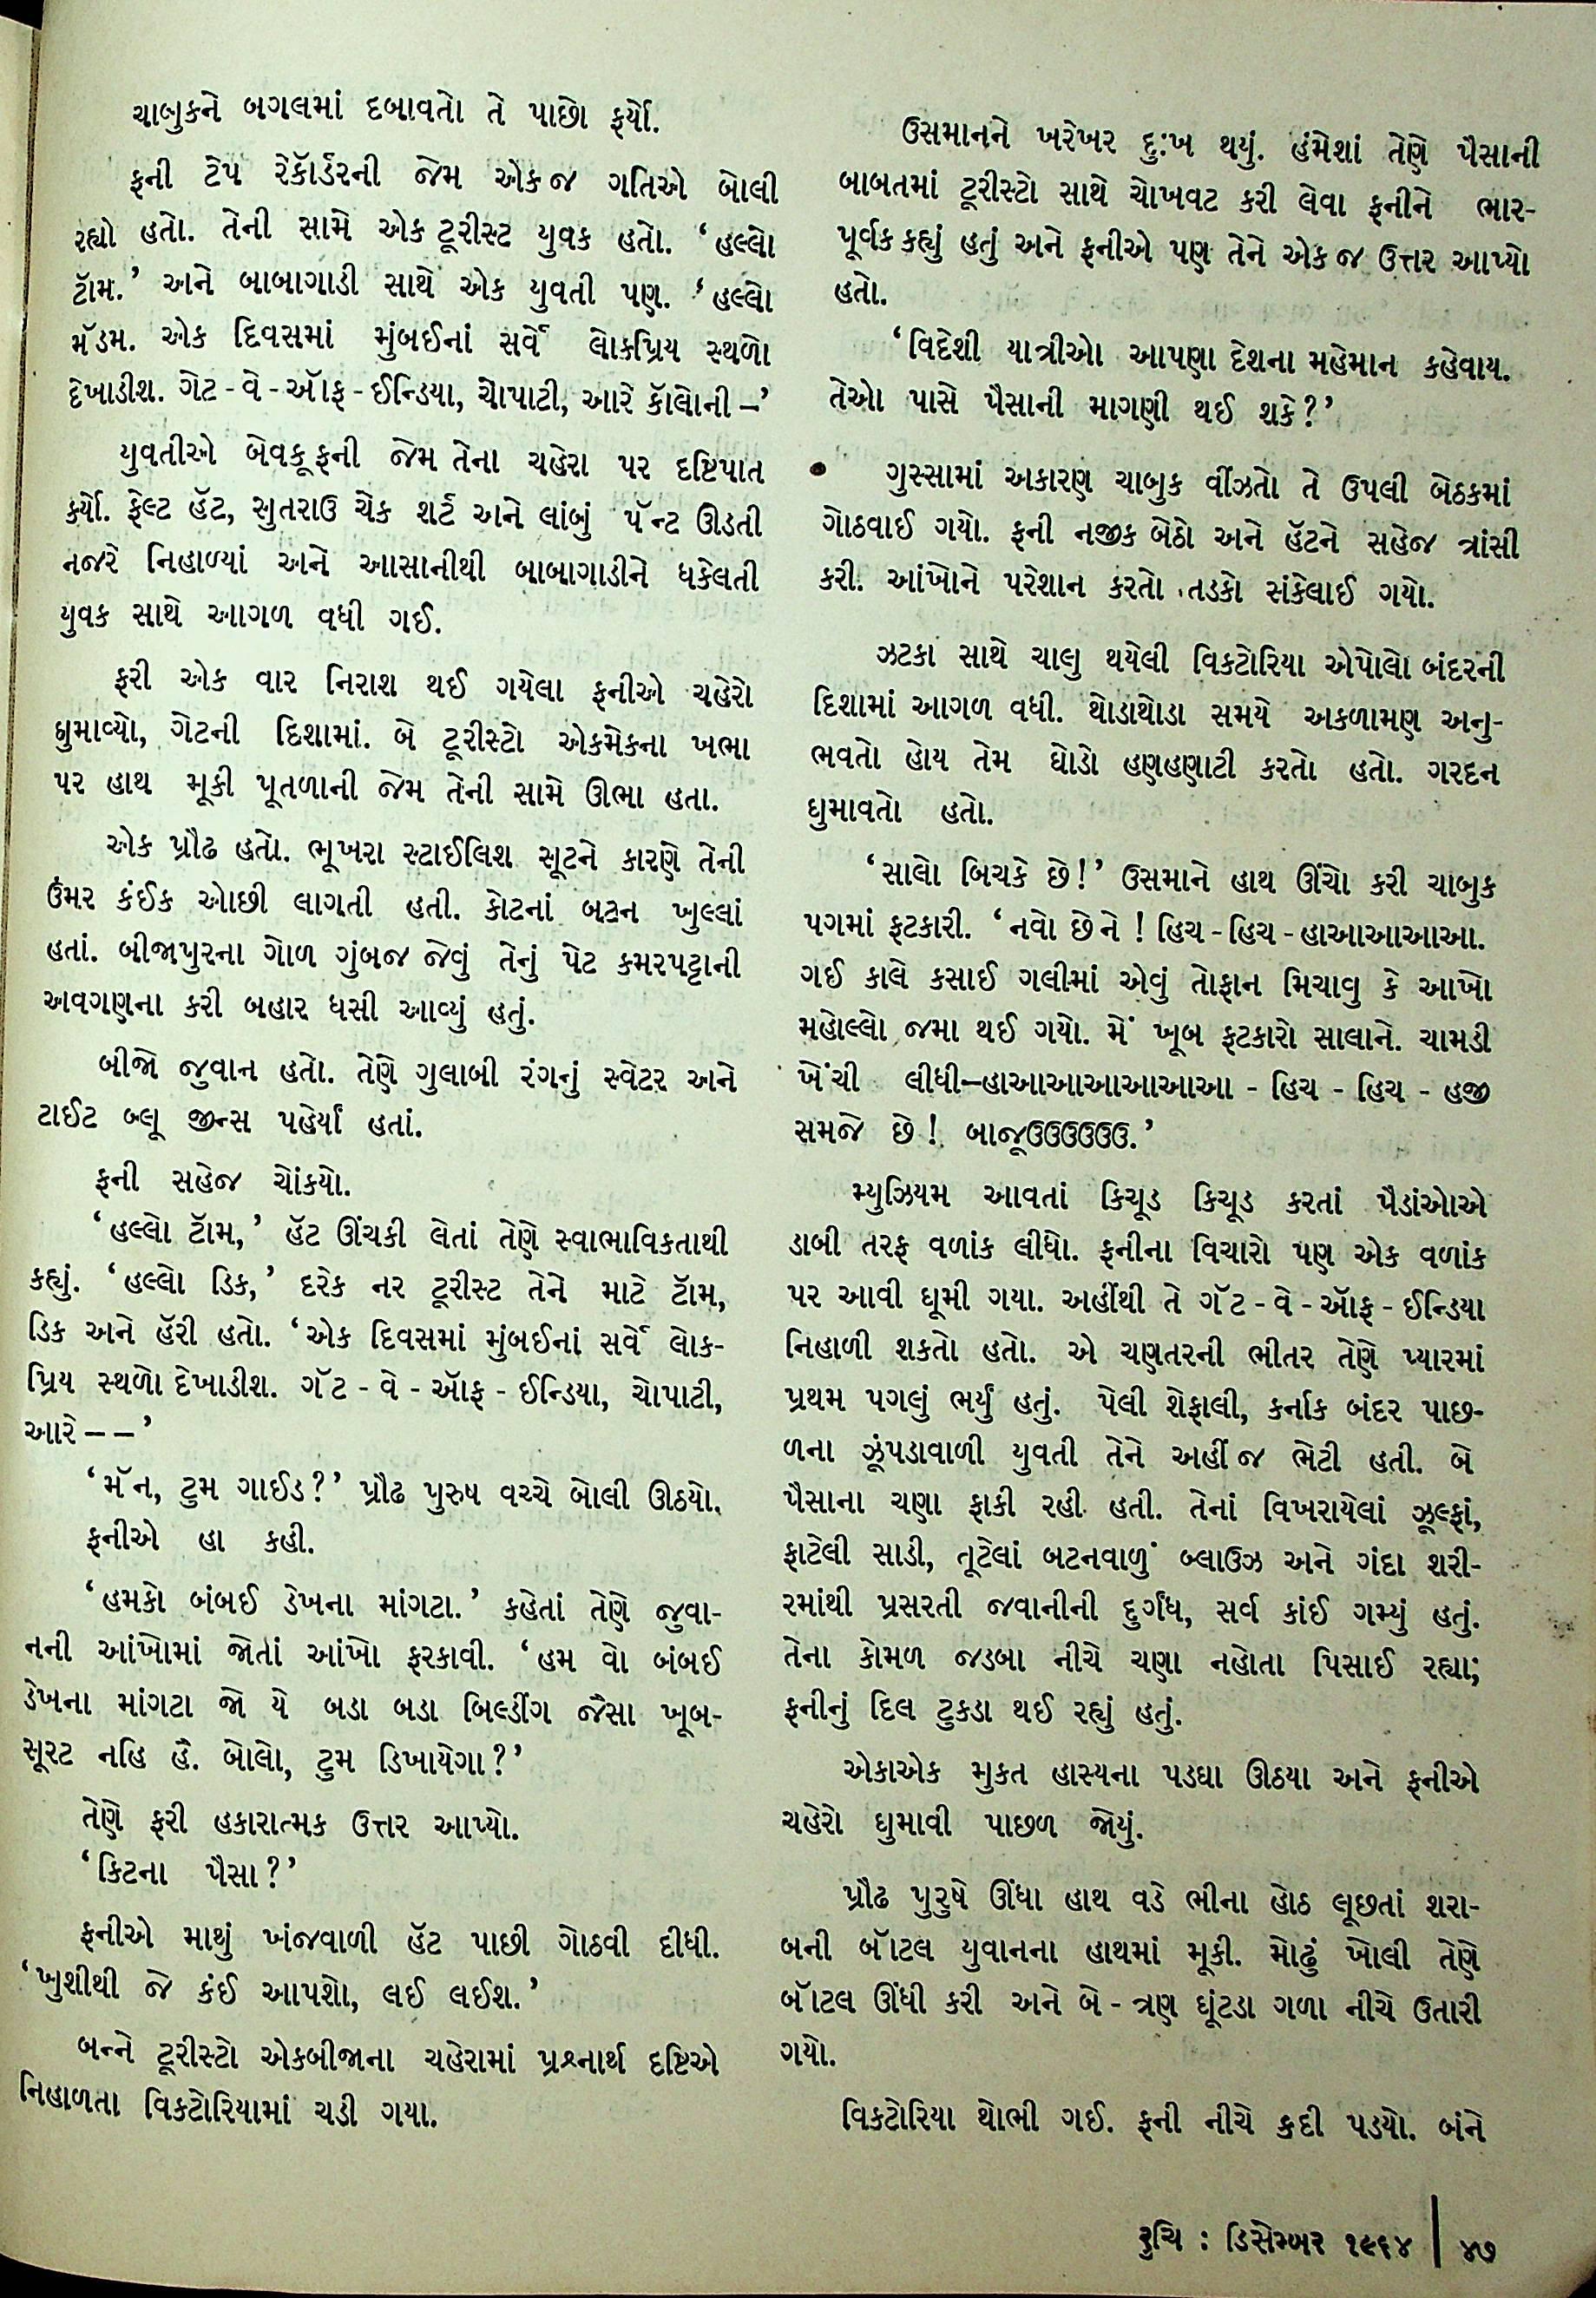 ચાબુકને બગલમાં દબાવતો તે પાછો ફર્યો.
ફની ટેપ રેકૉર્ડરની જેમ એકજ ગતિએ બોલી
રહ્યો હતો. તેની સામે એક ટૂરીસ્ટ યુવક હતો. ‘હલ્લો
ટૉમ.’ અને બાબાગાડી સાથે એક યુવતી પણ. ‘હલ્લો
મૅડમ. એક દિવસમાં મુંબઈનાં સર્વે લોકપ્રિય સ્થળો
દેખાડીશ. ગેટ - વે - ઑફ - ઈન્ડિયા, ચોપાટી, આરે કૉલોની –’
યુવતીએ બેવકૂફની જેમ તેના ચહેરા પર દષ્ટિપાત
કર્યો. ફેલ્ટ હૅટ, સુતરાઉ ચેક શર્ટ અને લાંબું પૅન્ટ ઊડતી
નજરે નિહાળ્યાં અને આસાનીથી બાબાગાડીને ધકેલતી
યુવક સાથે આગળ વધી ગઈ.
ફરી એક વાર નિરાશ થઈ ગયેલા ફનીએ ચહેરો
ઘુમાવ્યો, ગેટની દિશામાં. બે ટૂરીસ્ટો એકમેકના ખભા
પર હાથ મૂકી પૂતળાની જેમ તેની સામે ઊભા હતા.
એક પ્રૌઢ હતો. ભૂખરા સ્ટાઈલિશ સૂટને કારણે તેની
ઉંમર કંઈક ઓછી લાગતી હતી. કોટનાં બટન ખુલ્લાં
હતાં. બીજાપુરના ગોળ ગુંબજ જેવું તેનું પેટ કમરપટ્ટાની
અવગણના કરી બહાર ધસી આવ્યું હતું.
બીજો જુવાન હતો. તેણે ગુલાબી રંગનું સ્વેટર અને
ટાઈટ બ્લૂ જીન્સ પહેર્યાં હતાં.
ફની સહેજ ચોંક્યો.
‘હલ્લો ટૉમ,’ હૅટ ઊંચકી લેતાં તેણે સ્વાભાવિકતાથી
કહ્યું. ‘હલ્લો ડિક,’ દરેક નર ટૂરીસ્ટ તેને માટે ટૉમ,
ડિક અને હૅરી હતો. ‘એક દિવસમાં મુંબઈનાં સર્વે લોક-
પ્રિય સ્થળો દેખાડીશ. ગૅટ - વે - ઑફ - ઈન્ડિયા, ચોપાટી,
આરે – –’
‘મૅન, ટુમ ગાઈડ?’ પ્રૌઢ પુરુષ વચ્ચે બોલી ઊઠયો.
ફનીએ હા કહી.
‘હમકો બંબઈ ડેખના માંગટા.’ કહેતાં તેણે જુવા-
નની આંખોમાં જોતાં આંખો ફરકાવી. ‘હમ વો બંબઈ
ડેખના માંગટા જો યે બડા બડા બિલ્ડીંગ જૈસા ખૂબ-
સૂરટ નહિ હૈ. બોલો, ટુમ ડિખાયેગા?’
તેણે ફરી હકારાત્મક ઉત્તર આપ્યો.
‘કિટના પૈસા?’
ફનીએ માથું ખંજવાળી હૅટ પાછી ગોઠવી દીધી.
‘ખુશીથી જે કંઈ આપશો, લઈ લઈશ.’
બન્ને ટૂરીસ્ટો એકબીજાના ચહેરામાં પ્રશ્નાર્થ દષ્ટિએ
નિહાળતા વિક્ટોરિયામાં ચડી ગયા.
ઉસમાનને ખરેખર દુઃખ થયું. હંમેશાં તેણે પૈસાની
બાબતમાં ટૂરીસ્ટો સાથે ચોખવટ કરી લેવા ફનીને ભાર-
પૂર્વક કહ્યું હતું અને ફનીએ પણ તેને એક જ ઉત્તર આપ્યો
હતો.
‘વિદેશી યાત્રીઓ આપણા દેશના મહેમાન કહેવાય.
તેઓ પાસે પૈસાની માગણી થઈ શકે?’
• ગુસ્સામાં અકારણ ચાબુક વીંઝતો તે ઉપલી બેઠકમાં
ગોઠવાઈ ગયો. ફની નજીક બેઠો અને હૅટને સહેજ ત્રાંસી
કરી. આંખોને પરેશાન કરતો તડકો સંકેલાઈ ગયો.
ઝટકા સાથે ચાલુ થયેલી વિકટોરિયા એપોલો બંદરની
દિશામાં આગળ વધી. થોડાથોડા સમયે અકળામણ અનુ-
ભવતો હોય તેમ ઘોડો હણહણાટી કરતો હતો. ગરદન
ઘુમાવતો હતો.
‘સાલો બિચકે છે!’ ઉસમાને હાથ ઊંચો કરી ચાબુક
પગમાં ફટકારી. ‘નવો છેને ! હિચ - હિચ - હાઆઆઆઆ.
ગઈ કાલે કસાઈ ગલીમાં એવું તોફાન મિચાવુ કે આખો
મહોલ્લો જમા થઈ ગયો. મેં ખૂબ ફટકારો સાલાને. ચામડી
ખેંચી લીધી–હાઆઆઆઆઆઆ - હિચ - હિચ - હજી
સમજે છે! બાજૂઉઉઉઉઉઉ.’
મ્યુઝિયમ આવતાં કિચૂડ કિચૂડ કરતાં પૈડાંઓએ
ડાબી તરફ વળાંક લીધો. ફનીના વિચારો પણ એક વળાંક
પર આવી ઘૂમી ગયા. અહીંથી તે ગૅટ - વે - ઑફ - ઈન્ડિયા
નિહાળી શકતો હતો. એ ચણતરની ભીતર તેણે પ્યારમાં
પ્રથમ પગલું ભર્યું હતું. પેલી શેફાલી, કર્નાક બંદર પાછ-
ળના ઝૂંપડાવાળી યુવતી તેને અહીંજ ભેટી હતી. બે
પૈસાના ચણા ફાકી રહી હતી. તેનાં વિખરાયેલાં ઝૂલ્ફાં,
ફાટેલી સાડી, તૂટેલાં બટનવાળું બ્લાઉઝ અને ગંદા શરી-
રમાંથી પ્રસરતી જવાનીની દુર્ગંધ, સર્વ કાંઈ ગમ્યું હતું.
તેના કોમળ જડબા નીચે ચણા નહોતા પિસાઈ રહ્યા;
ફનીનું દિલ ટુકડા થઈ રહ્યું હતું.
એકાએક મુક્ત હાસ્યના પડઘા ઊઠયા અને ફનીએ
ચહેરો ઘુમાવી પાછળ જોયું.
પ્રૌઢ પુરુષે ઊંધા હાથ વડે ભીના હોઠ લૂછતાં શરા-
બની બૉટલ યુવાનના હાથમાં મૂકી. મોઢું ખોલી તેણે
બૉટલ ઊંધી કરી અને બે - ત્રણ ઘૂંટડા ગળા નીચે ઉતારી
ગયો.
વિકટોરિયા થોભી ગઈ. ફની નીચે કૂદી પડયો. બંને
રુચિ : ડિસેમ્બર ૧૯૬૪ | ૪૭